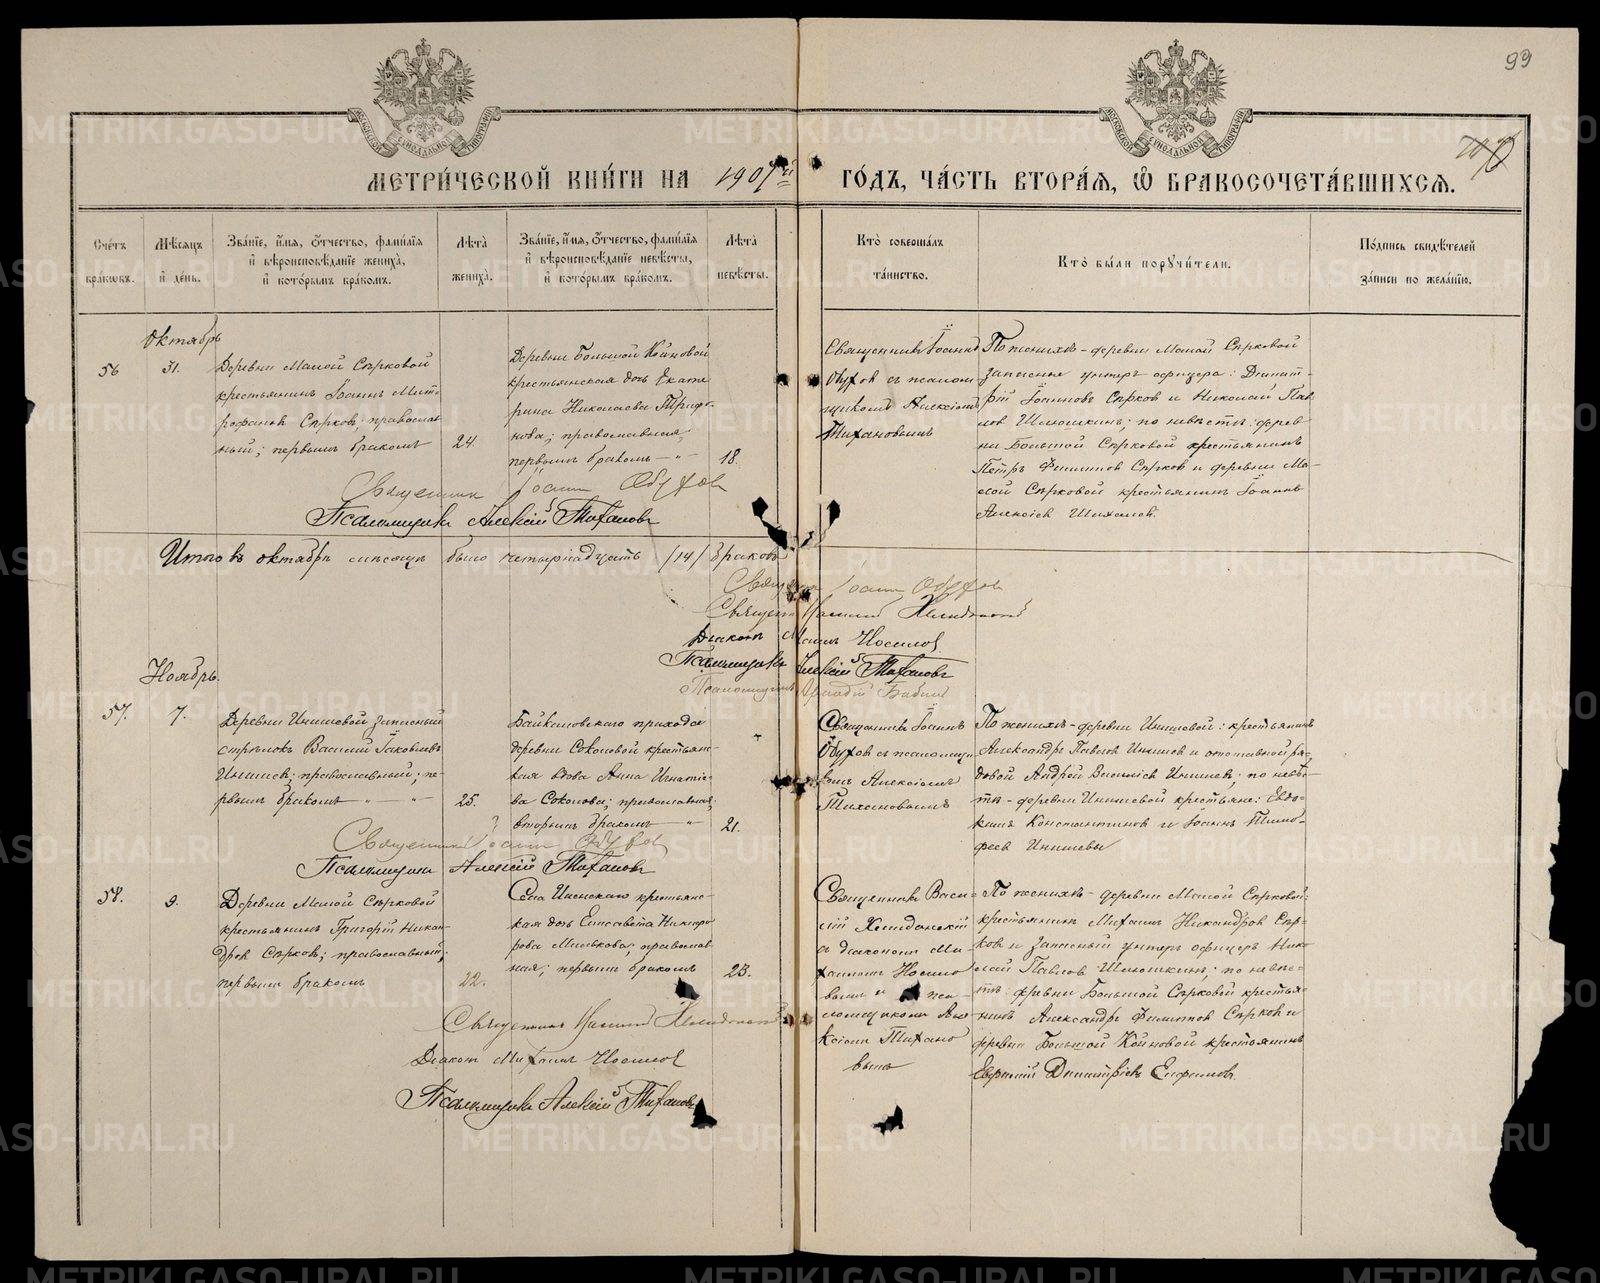 99
МЕТРИ́ЧЕСКОЙ КНИ́ГИ НА 1907й ГО́ДЪ, ЧА́СТЬ ВТОРА́Я, Ѽ БРАКОСОЧЕТА́ВШИХСЯ.
Сче́тъ бра́ковъ.
Мѣ́сяцъ и҆ де́нь.
Зва́нїе, и҆́мя, ѻ҆́тчество, фами́лїя и҆ вѣроисповѣ́данїе жениха̀, и҆ кото́рымъ бра́комъ.
Лѣ́та жениха̀.
Зва́нїе, и҆́мя, ѻ҆́тчество, фами́лїя и҆ вѣроисповѣ́данїе невѣ́сты, и҆ кото́рымъ бра́комъ.
Лѣ́та невѣ́сты.
Кто̀ соверша́лъ та́инство.
Кто̀ бы́ли порꙋчи́тели.
По́дпись свидѣ́телей за́писи по жела́нїю.
Октябрь
56
31.
Деревни Малой Сѣрковой
крестьянинъ Іоаннъ Мит-
рофановъ Сѣрковъ; православ-
ный; первымъ бракомъ
24.
Деревни Большой Койновой
крестьянская дочь Екате
рина Николаева Трифо-
нова; православная,
первымъ бракомъ — " —
18.
Священникъ Іоаннъ
Обуховъ съ псалом
щикомъ Алексіемъ
Тихановымъ
По женихѣ - деревни Малой Сѣрковой
запасные унтеръ офицера: Димит-
рій Іоанновъ Сѣрковъ и Николай Пав
ловъ Илюшкинъ; по невѣстѣ: дерев
ни Большой Сѣрковой крестьянинъ
Петръ Филиповъ Сѣрковъ и деревни Ма-
лой Сѣрковой крестьянинъ Іоаннъ
Алексіевъ Шихалевъ.
Священникъ Іоаннъ Обуховъ
Псаломщикъ Алексій Тихановъ
Итого въ октябрѣ мѣсяцѣ было четырнадцать /14/ браковъ
Священникъ Іоаннъ Обуховъ
Священникъ Василій
Діаконъ Михаилъ Носиловъ
Псаломщикъ Алексій Тихановъ
Псаломщикъ Аркадій Бабинъ
Ноябрь.
57.
7.
Деревни Иншевой запасный
стрѣлокъ Василій Іаковлевъ
Иншевъ; православный; пе-
рвымъ бракомъ — " — " —
25.
Байкаловскаго прихода
деревни Соколовой крестьян-
ская вдова Анна Игнатіе-
ва Соколова; православная;
вторымъ бракомъ — "
21.
Священникъ Іоаннъ
Обуховъ съ псаломщи
комъ Алексіемъ
Тихановымъ
По женихѣ - деревни Иншевой: крестьянинъ
Александръ Павловъ Иншевъ и отставной ря-
довой Андрей Василіевъ Иншевъ; по невѣс-
тѣ - деревни Иншевой крестьяне: Евдо-
кимъ Константиновъ и Іоаннъ Тимо-
феевъ Иншевы
Священникъ Іоаннъ Обуховъ
Псаломщикъ Алексій Тихановъ
58.
9.
Деревни Малой Сѣрковой
крестьянинъ Григорій Никан-
дровъ Сѣрковъ; православный;
первымъ бракомъ
22.
крестьянс-
кая дочь Елисавета Никифо
рова Милькова, православ-
ная; первымъ бракомъ
23.
Священникъ Васи-
лій
съ діакономъ Ми-
хаиломъ Носило
вымъ и пса-
ломщикомъ Але
ксіемъ Тихано
вымъ
По женихѣ - деревни Малой Сѣрковой:
крестьянинъ Михаилъ Никандровъ Сѣр-
ковъ и запасный унтеръ офицеръ Нико
лай Павловъ Илюшкинъ; по невѣс-
тѣ: деревни Большой Сѣрковой крестья-
нинъ Александръ Филиповъ Сѣрковъ и
деревни Большой Койновой крестьянинъ
Евфимій Димитріевъ
Священникъ Василій
Діаконъ Михаилъ Носиловъ
Псаломщикъ Алексій Тихановъ
METRIKI.GASO-URAL.RU